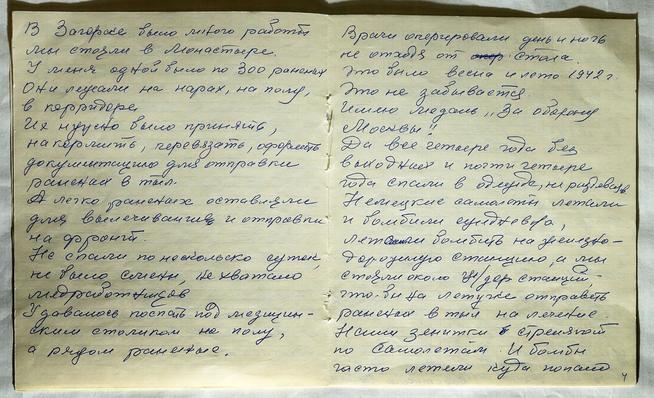 В Загорске было много работы
мы стояли в Монастыре.
У меня одной было по 300 раненых
Они лежали на нарах, на полу,
в корридоре,
Их нужно было принять,
накормить, перевязать, оформить
документацию для отправки
раненых в тыл.
А легко раненых оставляли
для вылечивания и отправки
на фронт.
Не спали по несколько суток,
не было смены, не хватало
медработников
Удавалось поспать под медицин-
ским столиком на полу,
а рядом раненые.
Врачи оперировали день и ночь
не отходя от стола.
Это было весна и лето 1942 г.
Это не забывается.
Имею медаль „За оборону
Москвы"
Да все четыре года без
выходных и почти четыре
года спали в одежде, не раздеваясь
Немецкие самолёты летали
и бомбили ежедневно,
летали бомбить на железно-
дорожную станцию, а мы
стояли около ж/дор станций,
что-бы на летучке отправить
раненых в тыл на лечение.
Наши зенитки стреляли
по самолётам. И бомбы
часто летели куда попало
4